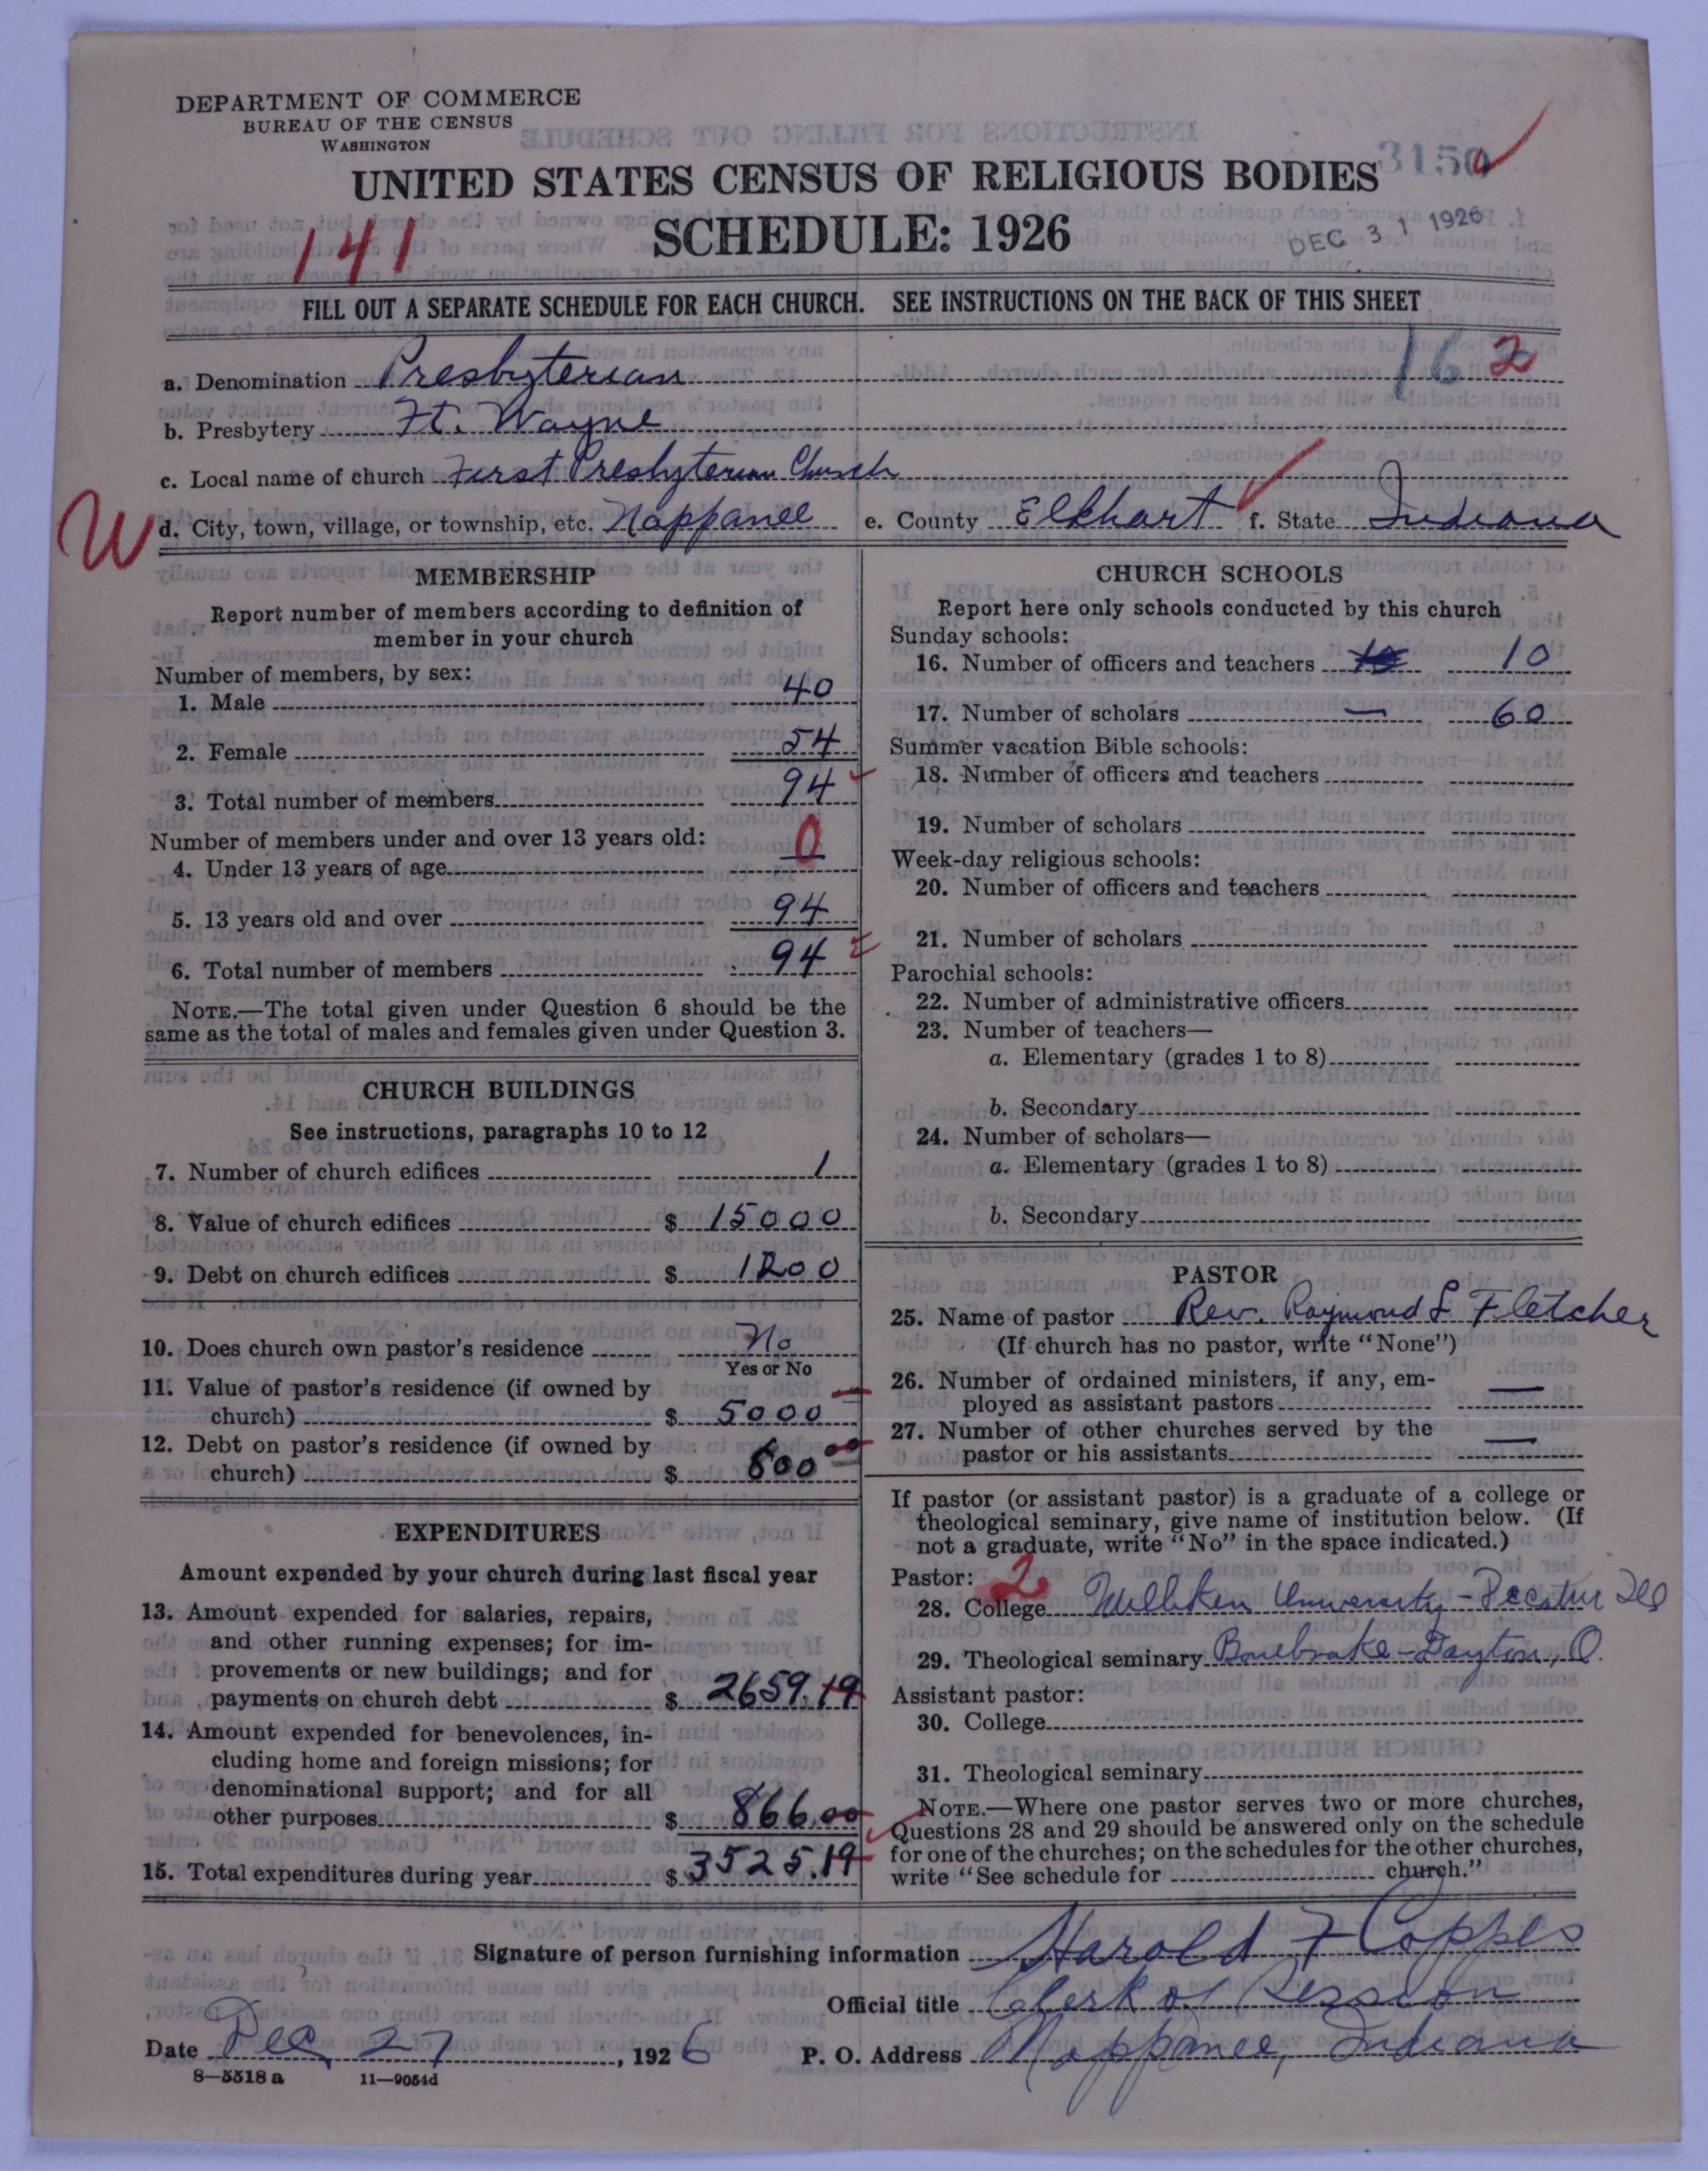 DEPARTMENT OF COMMERCE
BUREAU OF THE CENSUS
WASHINGTON
UNITED STATES CENSUS OF RELIGIOUS BODIES
3150
SCHEDULE: 1926
DEC 31 1926
141
FILL OUT A SEPARATE SCHEDULE FOR EACH CHURCH. SEE INSTRUCTIONS ON THE BACK OF THIS SHEET
162
a. Denomination Presbyterian
b. Presbytery Ft. Wayne
c. Local name of church First Presbyterian Church
W
d. City, town, village, or township, etc. Nappanee e. County Elkhart f. State Indiana
MEMBERSHIP
Report number of members according to definition of
member in your church
Number of members, by sex:
1. Male 40
2. Female 54
3. Total number of members 94
Number of members under and over 13 years old:
4. Under 13 years of age 0
5. 13 years old and over 94
6. Total number of members 94
NOTE.—The total given under Question 6 should be the
same as the total of males and females given under Question 3.
CHURCH BUILDINGS
See instructions, paragraphs 10 to 12
7. Number of church edifices 1
8. Value of church edifices $ 15000
9. Debt on church edifices $ 1200
10. Does church own pastor's residence No
Yes or No
11. Value of pastor's residence (if owned by
church) $ 5000
12. Debt on pastor's residence (if owned by
church) $ 600 00
EXPENDITURES
Amount expended by your church during last fiscal year
13. Amount expended for salaries, repairs,
and other running expenses; for im-
provements or new buildings; and for
payments on church debt $ 2659.19
14. Amount expended for benevolences, in-
cluding home and foreign missions; for
denominational support; and for all
other purposes $ 866.00
15. Total expenditures during year $ 3525.19
CHURCH SCHOOLS
Report here only schools conducted by this church
Sunday schools:
16. Number of officers and teachers 10
17. Number of scholars — 60
Summer vacation Bible schools:
18. Number of officers and teachers
19. Number of scholars
Week-day religious schools:
20. Number of officers and teachers
21. Number of scholars
Parochial schools:
22. Number of administrative officers
23. Number of teachers—
a. Elementary (grades 1 to 8)
b. Secondary
24. Number of scholars—
a. Elementary (grades 1 to 8)
b. Secondary
PASTOR
25. Name of pastor Rev. Raymond L Fletcher
(If church has no pastor, write "None")
26. Number of ordained ministers, if any, em-
ployed as assistant pastors —
27. Number of other churches served by the
pastor or his assistants —
If pastor (or assistant pastor) is a graduate of a college or
theological seminary, give name of institution below. (If
not a graduate, write "No" in the space indicated.)
Pastor: 2
28. College Milliken University - Decatur Ill
29. Theological seminary Bonebrake - Dayton, O.
Assistant pastor:
30. College
31. Theological seminary
NOTE.—Where one pastor serves two or more churches,
Questions 28 and 29 should be answered only on the schedule
for one of the churches; on the schedules for the other churches,
write "See schedule for church."
Signature of person furnishing information Harold F Coppes
Official title Clerk of Session
Date Dec 27, 1926 P. O. Address Nappanee, Indiana
8—5518 a 11—9054d